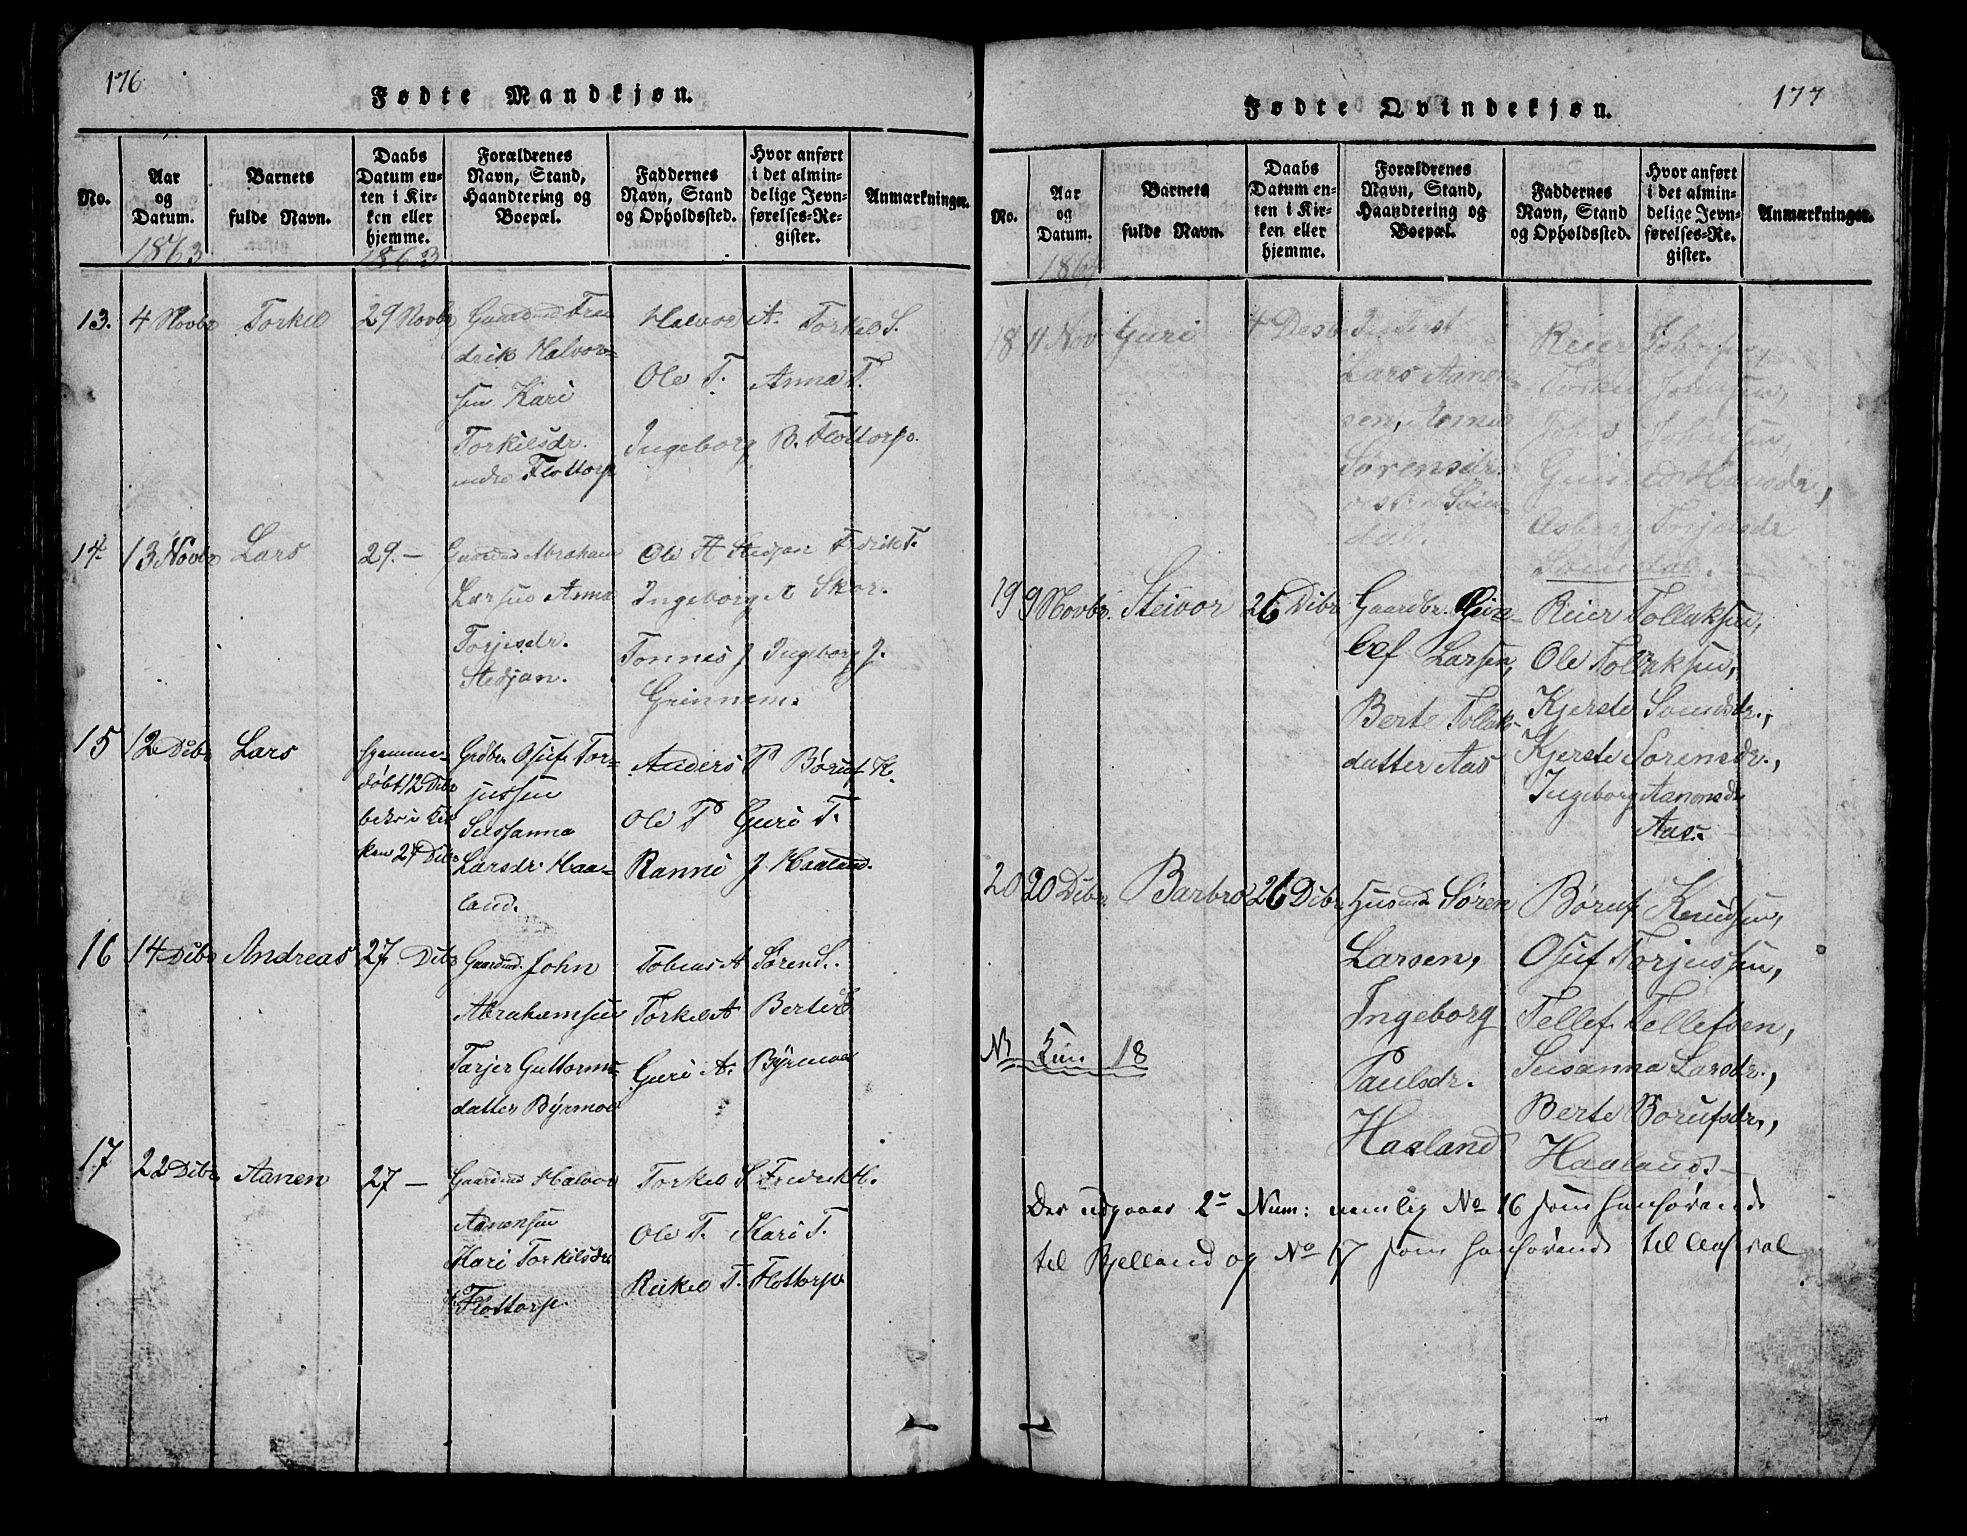 176
Fødte Mandkjøn.
No.
Aar og Datum.
Barnets fulde Navn.
Daabs Datum enten i Kirken eller hjemme.
Forældrenes Navn, Stand, Haandtering og Boepæl.
Faddernes Navn, Stand og Opholdssted.
Hvor anført i det almindelige Jevnførelses-Register.
Anmærkninger.
1863 1863
13. 4 Novbr Torkel 29 Novbr
Gaardmd Fredrik Halvorsen Kari Torkilsdr. Flottorp
Halvor A. Torkel S.
Ole T. Anna T.
Ingeborg B. Flottorp.
14. 13 Novbr Lars 29.—
Gaardmd Abraham
Larsen Anna
Torjesdr.
Stedjan.
Ole A Stedjan Fredrik T.
Ingeborg A Skor.
Tonnes J Ingeborg J.
Grinnem.
15 12 Dibr Lars
hjemmedøbt 12 Dibr
bekr i Kirken 27 Dibr
Grdbr. Osuf Torjussen
Sussanna
Larsdr. Haaland.
Anders P Børuf K.
Ole P Guri T.
Ranni J. Haaland.
16 14 Dibr Andreas 27. Dibr
Gaardmd. John
Abrahamsen
Tarjer Guttormsdatter Byrmoe
Tobias A Søren S.
Torkel A Berte S
Guri A. Byrmoe
17 22 Dibr Aanen 27 —
Gaardmd Halvor
Aanensen
Kari Torkilsdr
Flottorp.
Torkel S Fredrik H.
Ole T. Kari T.
Reikel T. Flottorp
177
Fødte Qvindekjøn.
No.
Aar og Datum.
Barnets fulde Navn.
Daabs Datum enten i Kirken eller hjemme.
Forældrenes Navn, Stand, Haandtering og Boepæl.
Faddernes Navn, Stand og Opholdssted.
Hvor anført i det almindelige Jevnførelses-Register.
Anmærkninger.
18 11 Nov Guri 4
Lars Aanensen,
Sørensdr.
Reier Johnsen,
Torkel Johnsen,
Johnsen,
Gunild Hansdr,
Asberg Torjusdr
Somdal.
19 9 Novbr. Steivor 26 Dibr
Gaardbr. Gunlef Larsen,
Berte Tollaksdatter Aas
Reier Tollaksen,
Ole Tollaksen,
Kjerste Somdsdr.,
Kjerste Sorensdr.,
Ingeborg Aanensdr
Aas.
20 20 Dibr. Barbro 26 Dibr.
Husmd Søren
Larsen,
Ingeborg
Paulsdr.
Haaland
Børuf Knudsen,
Osuf Torjussen,
Tellef Tellefsen,
Susanna Larsdr.,
Berte Borufsdr.,
Haaland.
NB Kun 18
Der udgaaer 2de Num: nemlig No 16 som henhørende
til Bjelland og No 17 som henhørende til Aaseral